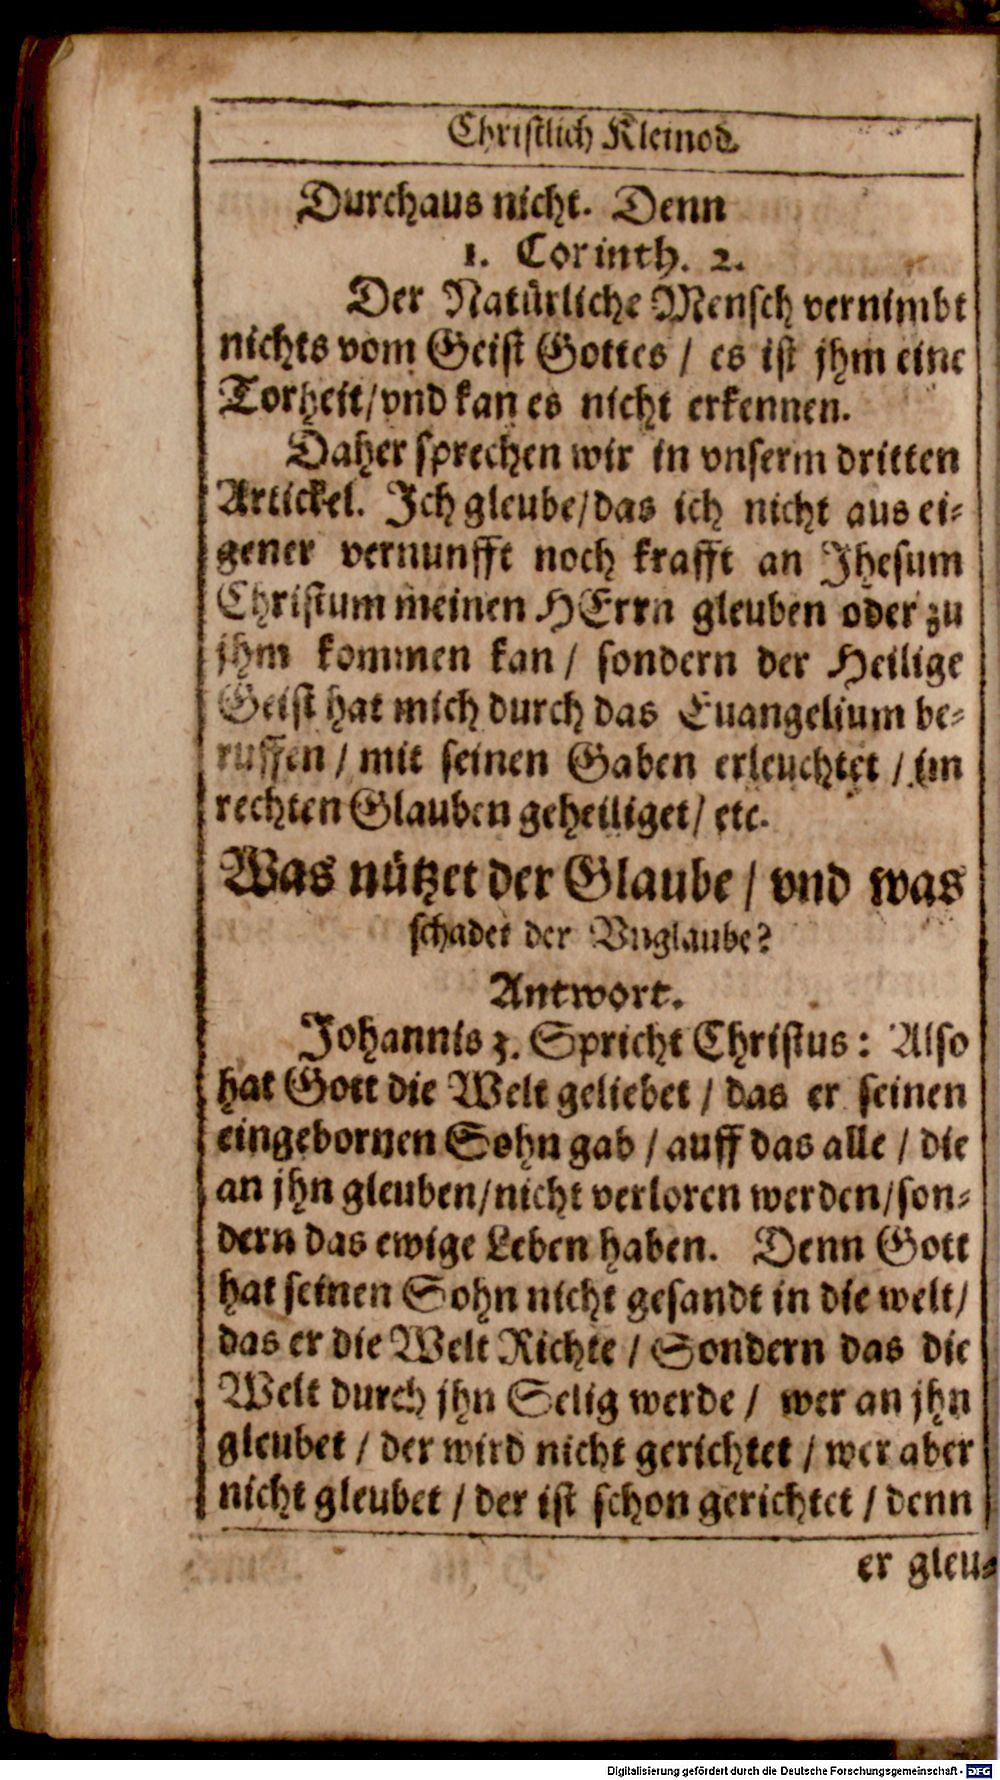 Christlich Kleinod.
Durchaus nicht. Denn
1. Corinth. 2.
Der Natürliche Mensch vernimbt
nichts vom Geist Gottes / es ist jhm eine
Torheit/vnd kan es nicht erkennen.
Daher sprechen wir in vnserm dritten
Artickel. Ich gleube/das ich nicht aus ei-
gener vernunfft noch krafft an Jhesum
Christum meinen HErrn gleuben oder zu
jhm kommen kan / sondern der Heilige
Geist hat mich durch das Euangelium be-
ruffen / mit seinen Gaben erleuchtet / im
rechten Glauben geheiliget/ etc.
Was nützet der Glaube / vnd was
schadet der Vnglaube?
Antwort.
Johannis 3. Spricht Christus: Also
hat Gott die Welt geliebet / das er seinen
eingebornen Sohn gab / auff das alle / die
an jhn gleuben/nicht verloren werden/son-
dern das ewige Leben haben. Denn Gott
hat seinen Sohn nicht gesandt in die welt/
das er die Welt Richte / Sondern das die
Welt durch jhn Selig werde / wer an jhn
gleubet / der wird nicht gerichtet / wer aber
nicht gleubet / der ist schon gerichtet / denn
er gleu-
Digitalisierung gefördert durch die Deutsche Forschungsgemeinschaft - DFG